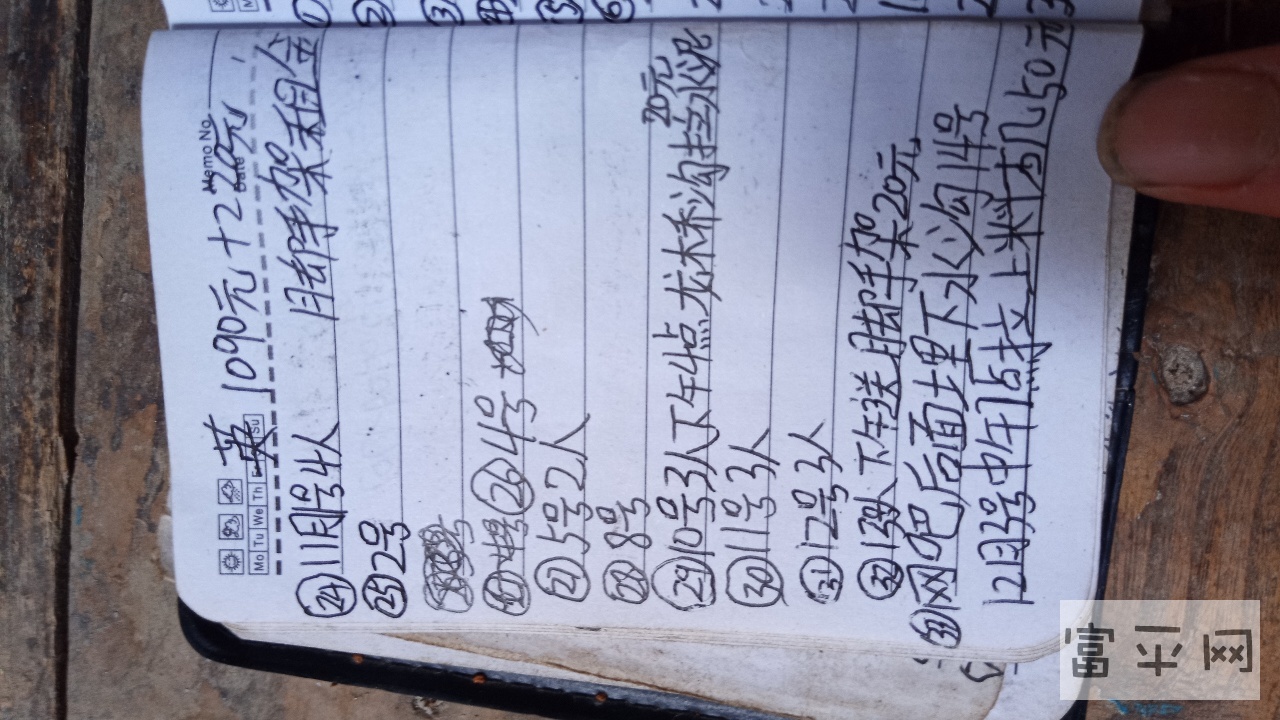 Memo No.
Date
Mo Tu We Th Fr Sa Su
英 1090元+220元
㉔ 11月1号4人 脚手架租金
㉕ 2号
㉖ 4号
㉗ 5号2人
㉘ 8号
㉙ 10号3人下午4点龙林科沟挡水泥 20元
㉚ 11号3人
㉛ 12号3人
㉜ 13号 人下午送脚手架20元
㉝ 网吧后面埋下水沟14号
12月3号中午1点拉上料机50元
富平网